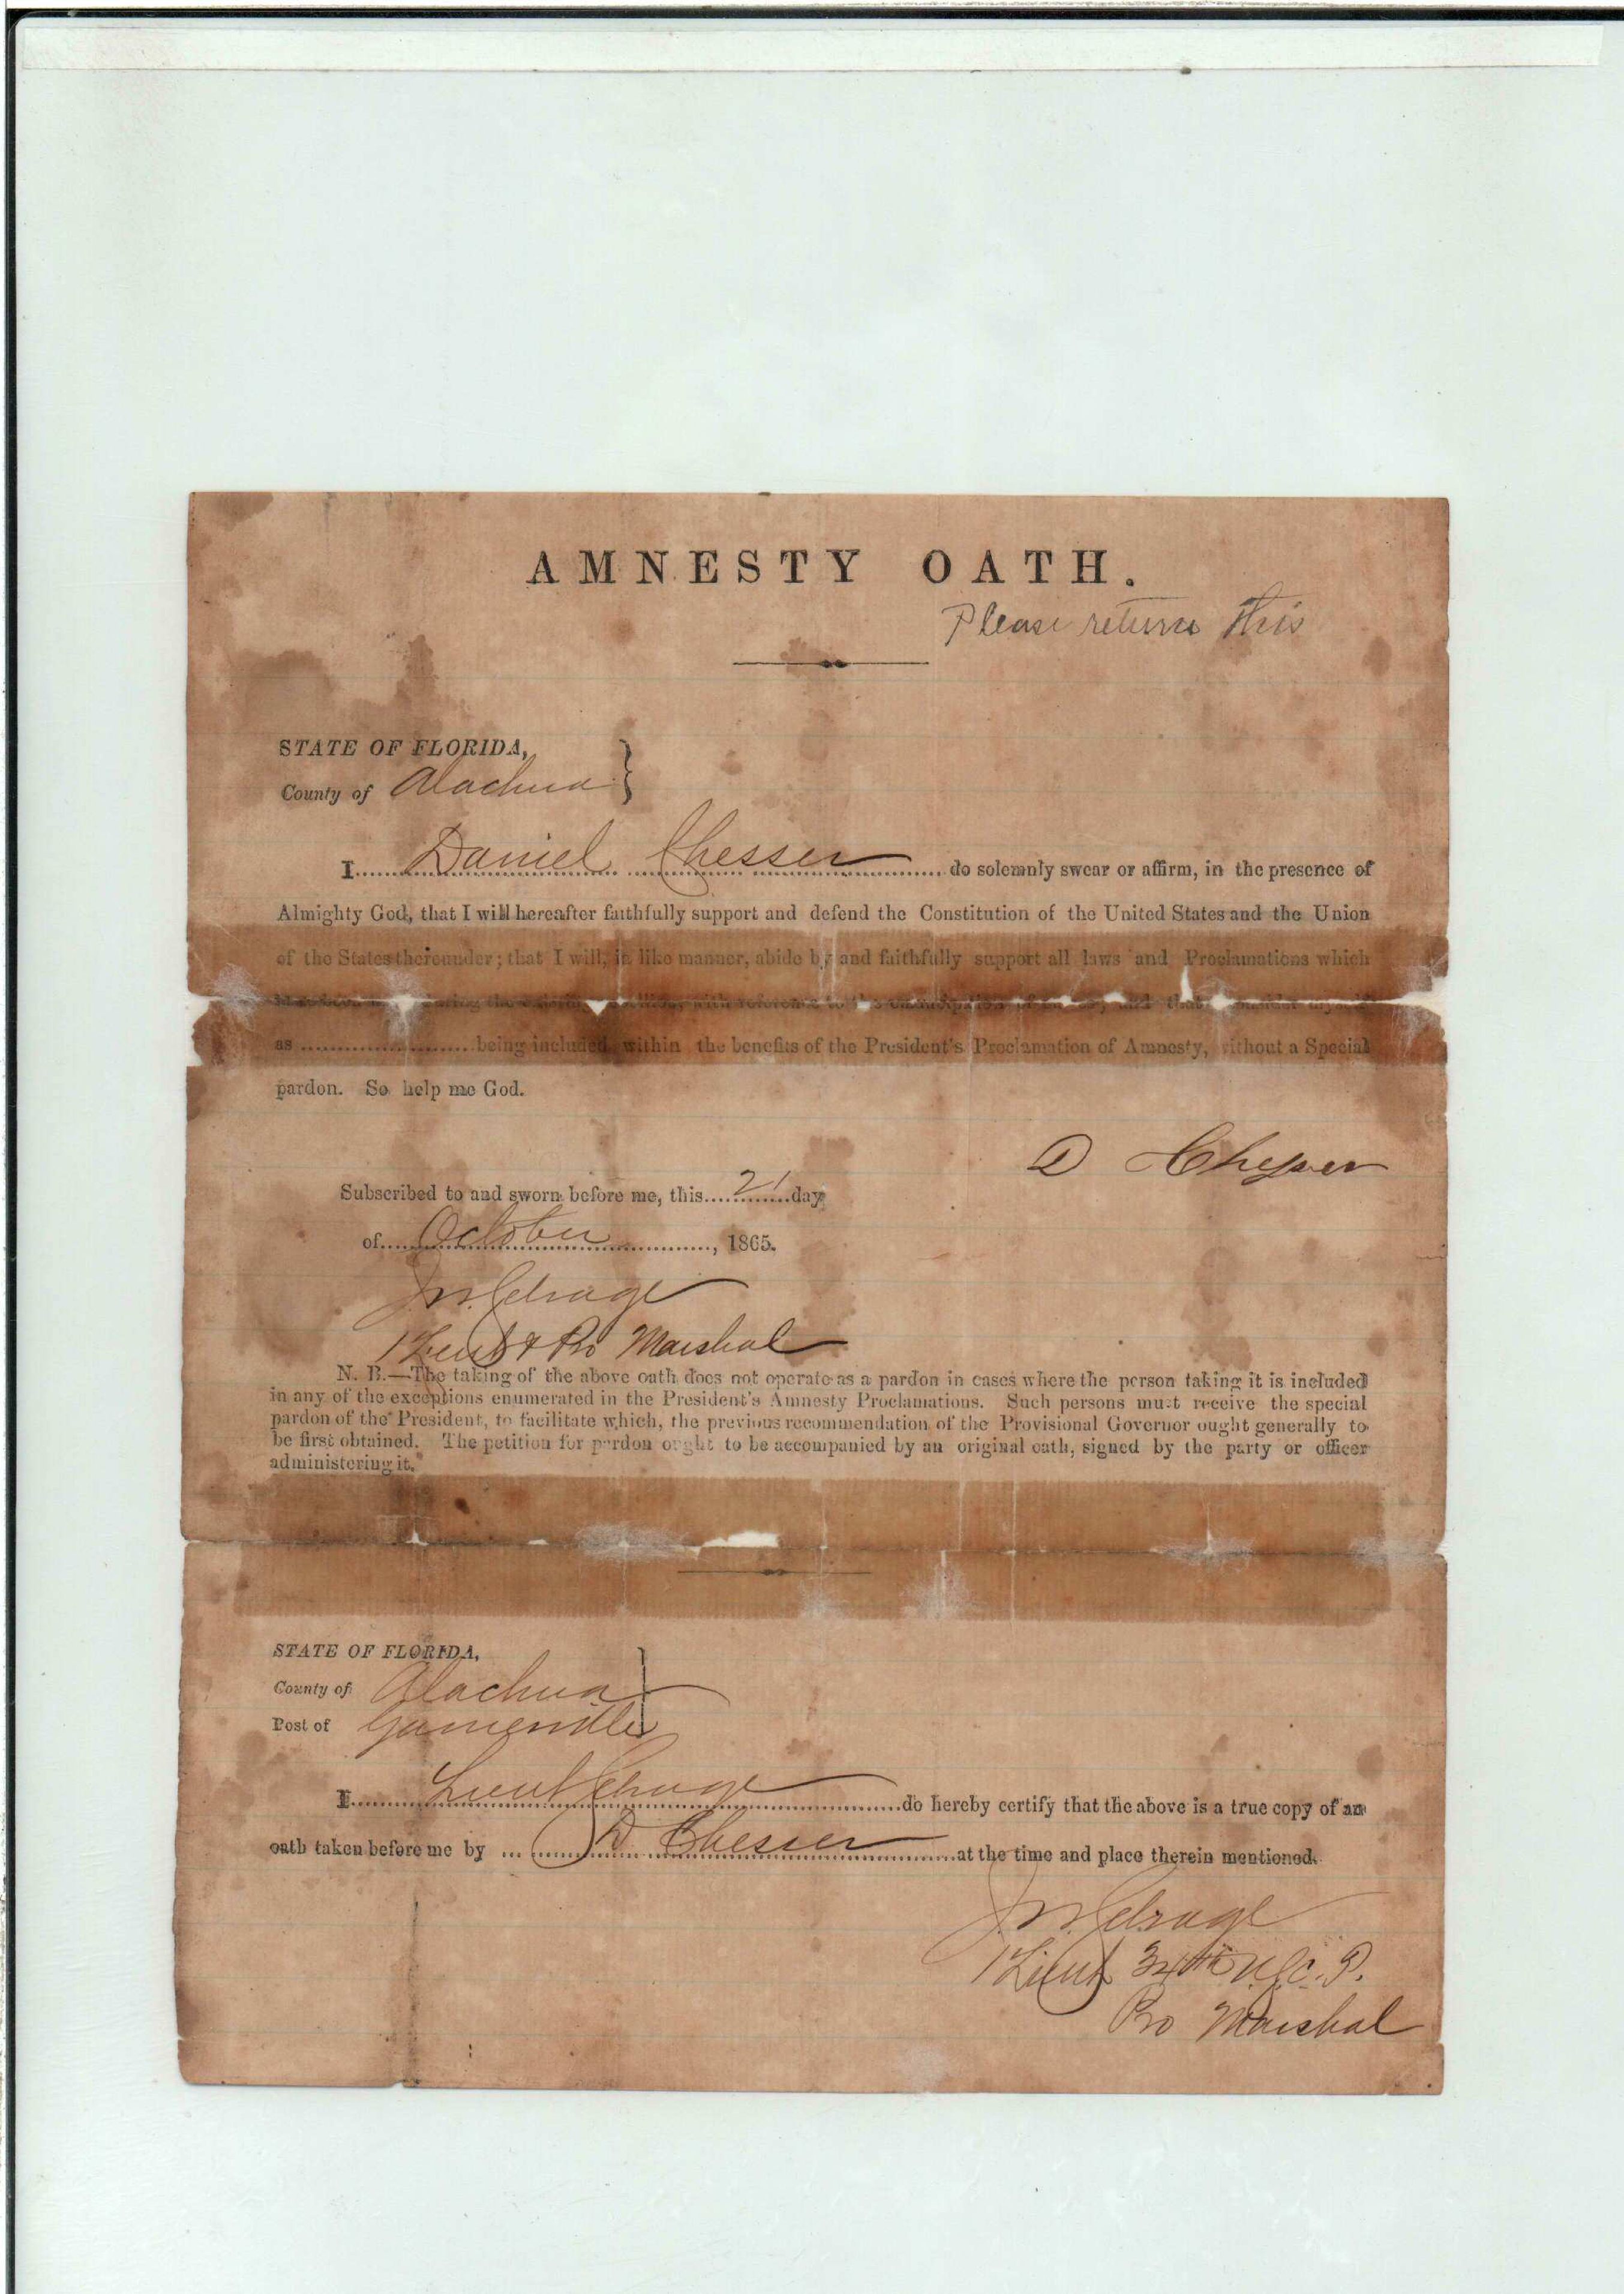 AMNESTY OATH.
Please return this
STATE OF FLORIDA,
County of Alachua
I Daniel Chesser do solemnly swear or affirm, in the presence of
Almighty God, that I will hereafter faithfully support and defend the Constitution of the United States and the Union
of the States thereunder; that I will, in like manner, abide by and faithfully support all laws and Proclamations which
during the with reference to the that
as ........ being included within the benefits of the President's Proclamation of Amnesty, without a Special
pardon. So help me God.
D Chesser
Subscribed to and sworn before me, this 21 day
of October, 1865.
1 Lieut & Pro Marshal
N. B.—The taking of the above oath does not operate as a pardon in cases where the person taking it is included
in any of the exceptions enumerated in the President's Amnesty Proclamations. Such persons must receive the special
pardon of the President, to facilitate which, the previous recommendation of the Provisional Governor ought generally to
be first obtained. The petition for pardon ought to be accompanied by an original oath, signed by the party or officer
administering it.
STATE OF FLORIDA,
County of Alachua
Post of Gainesville
I Lieut do hereby certify that the above is a true copy of an
oath taken before me by D. Chesser at the time and place therein mentioned.
1 Lieut 34th U.S.C.T.
Pro Marshal